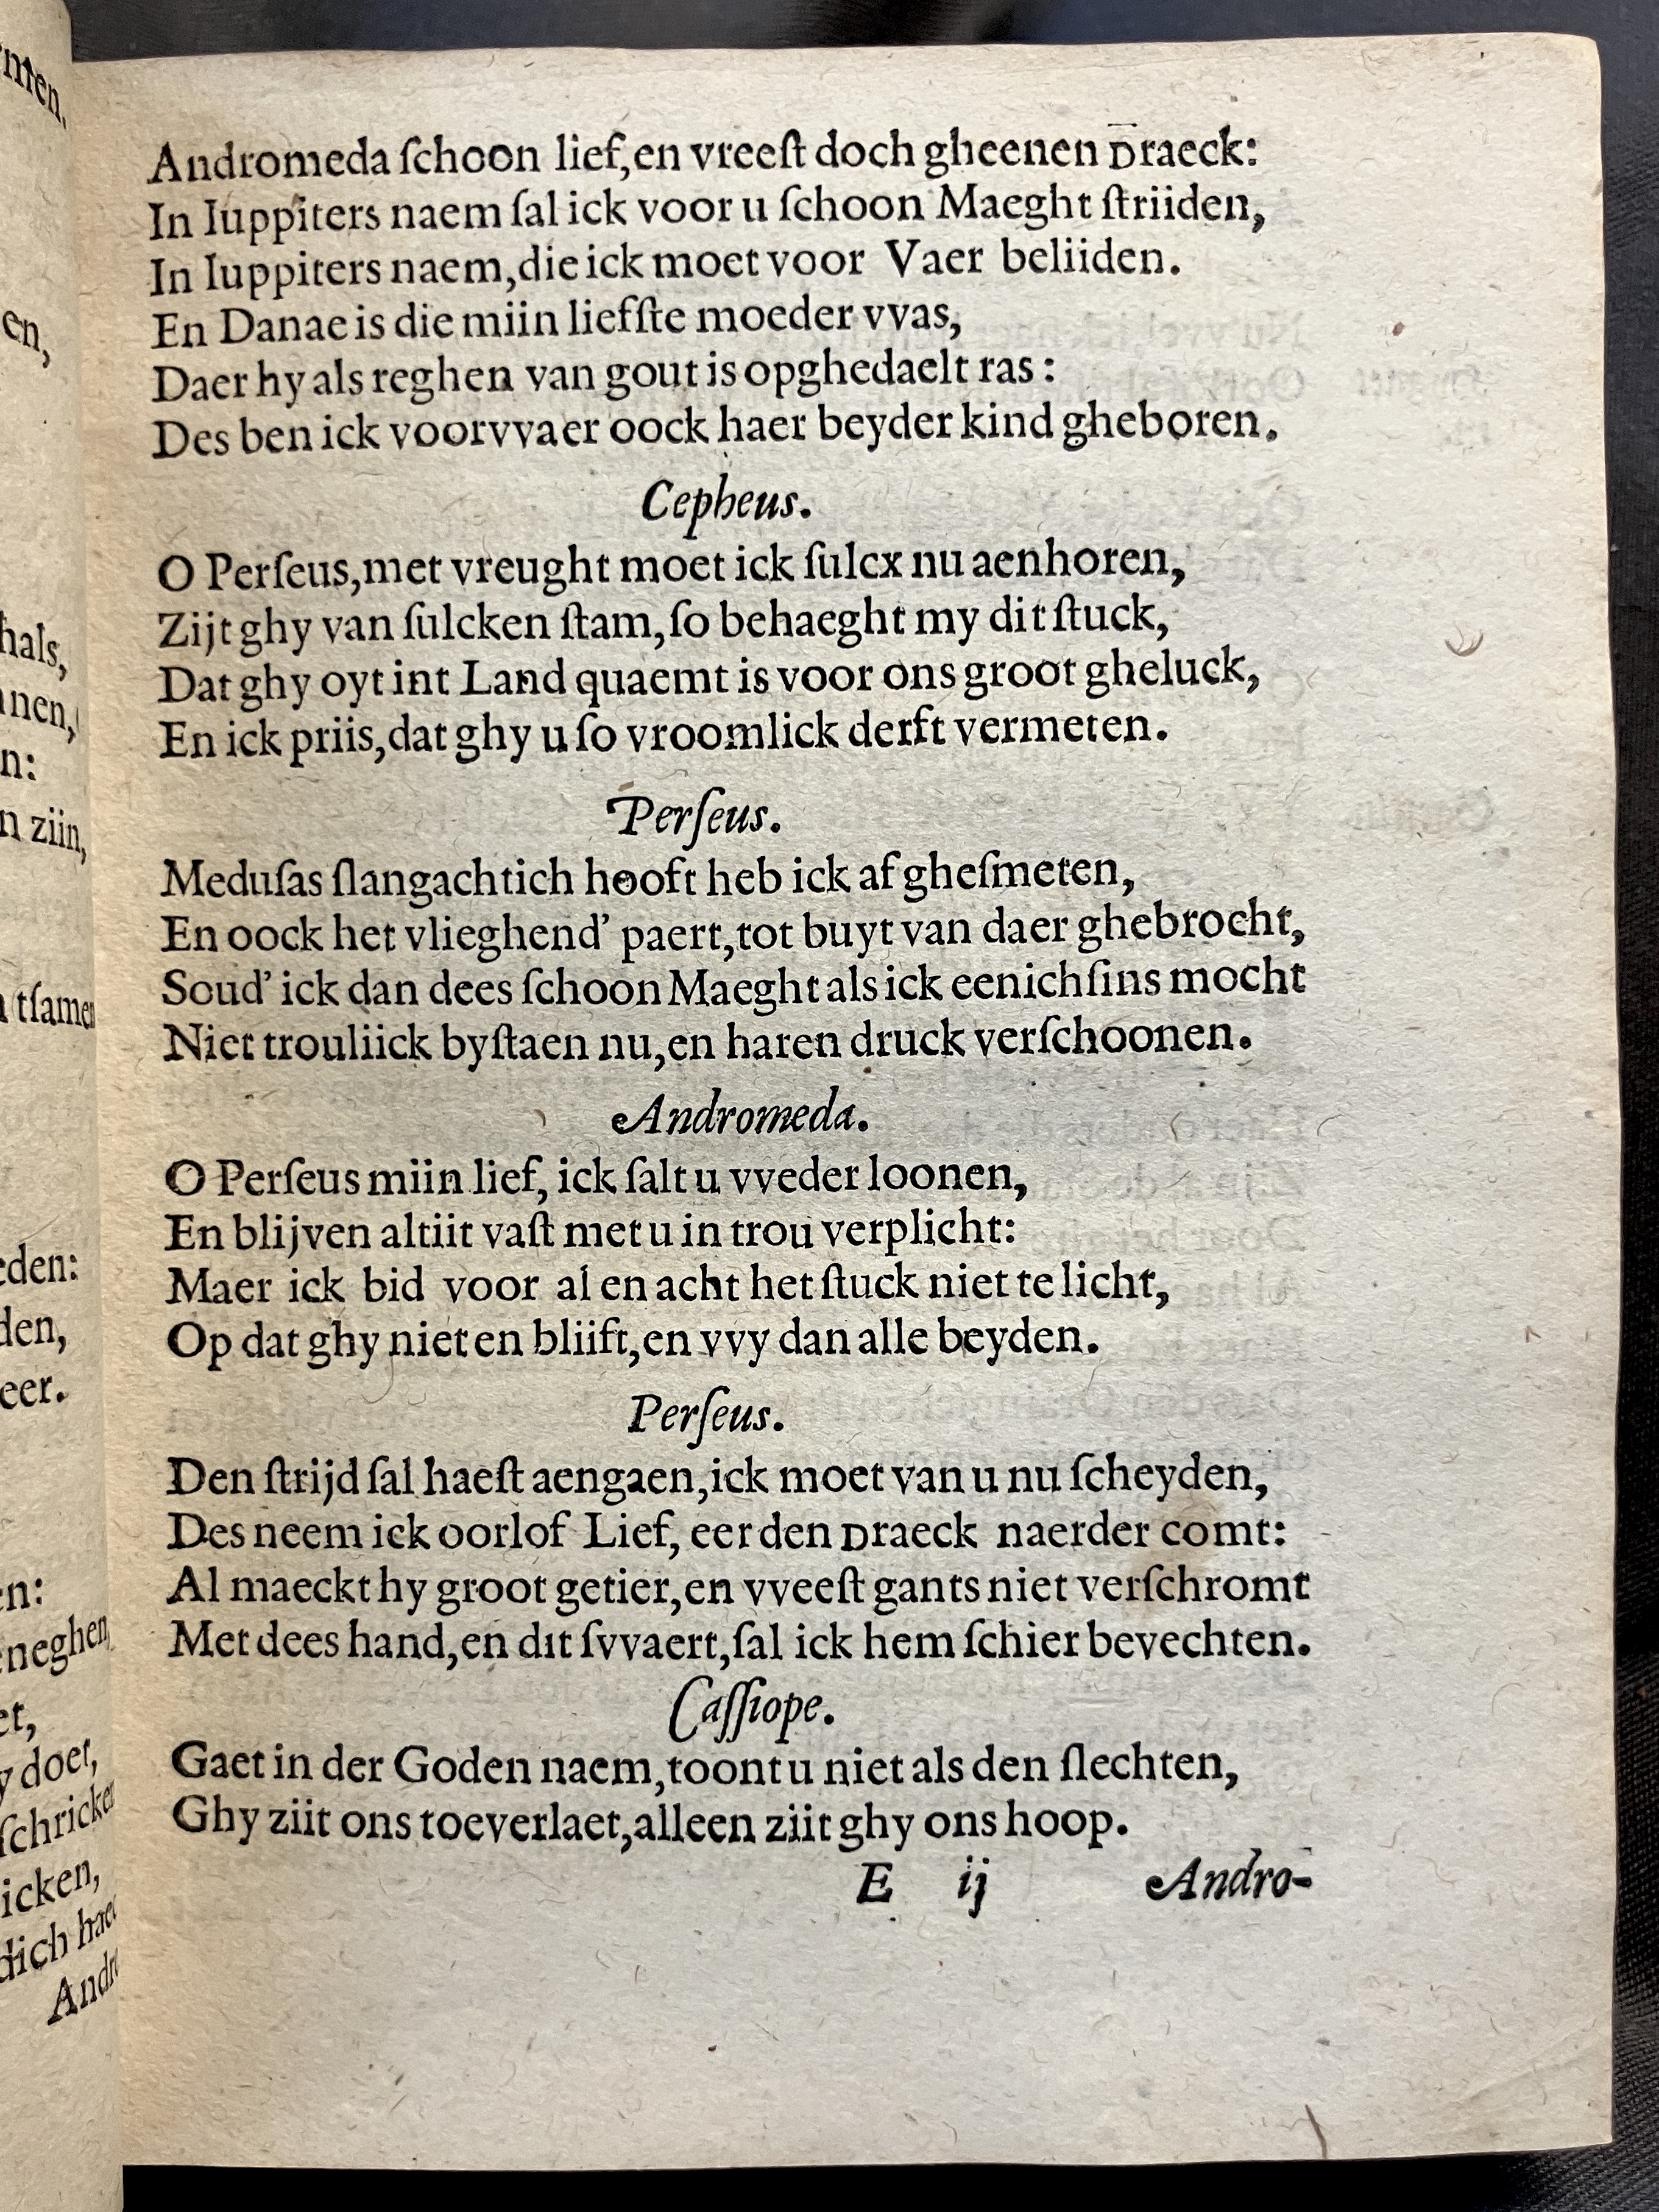 Andromeda ſchoon lief, en vreeſt doch gheenen Draeck:
In Iuppiters naem ſal ick voor u ſchoon Maeght ſtriiden,
In Iuppiters naem, die ick moet voor Vaer beliiden.
En Danae is die miin liefſte moeder vvas,
Daer hy als reghen van gout is opghedaelt ras:
Des ben ick voorvvaer oock haer beyder kind gheboren.
Cepheus.
O Perſeus, met vreught moet ick ſulcx nu aenhoren,
Zijt ghy van ſulcken ſtam, ſo behaeght my dit ſtuck,
Dat ghy oyt int Land quaemt is voor ons groot gheluck,
En ick priis, dat ghy u ſo vroomlick derft vermeten.
Perſeus.
Meduſas ſlangachtich hooft heb ick af gheſmeten,
En oock het vlieghend' paert, tot buyt van daer ghebrocht,
Soud' ick dan dees ſchoon Maeght als ick eenichſins mocht
Niet trouliick byſtaen nu, en haren druck verſchoonen.
Andromeda.
O Perſeus miin lief, ick ſalt u vveder loonen,
En blijven altiit vaſt met u in trou verplicht:
Maer ick bid voor al en acht het ſtuck niet te licht,
Op dat ghy niet en bliift, en vvy dan alle beyden.
Perſeus.
Den ſtrijd ſal haeſt aengaen, ick moet van u nu ſcheyden,
Des neem ick oorlof Lief, eer den Draeck naerder comt:
Al maeckt hy groot getier, en vveeſt gants niet verſchromt
Met dees hand, en dit ſvvaert, ſal ick hem ſchier bevechten.
Caſſiope.
Gaet in der Goden naem, toont u niet als den ſlechten,
Ghy ziit ons toeverlaet, alleen ziit ghy ons hoop.
E ij Andro-